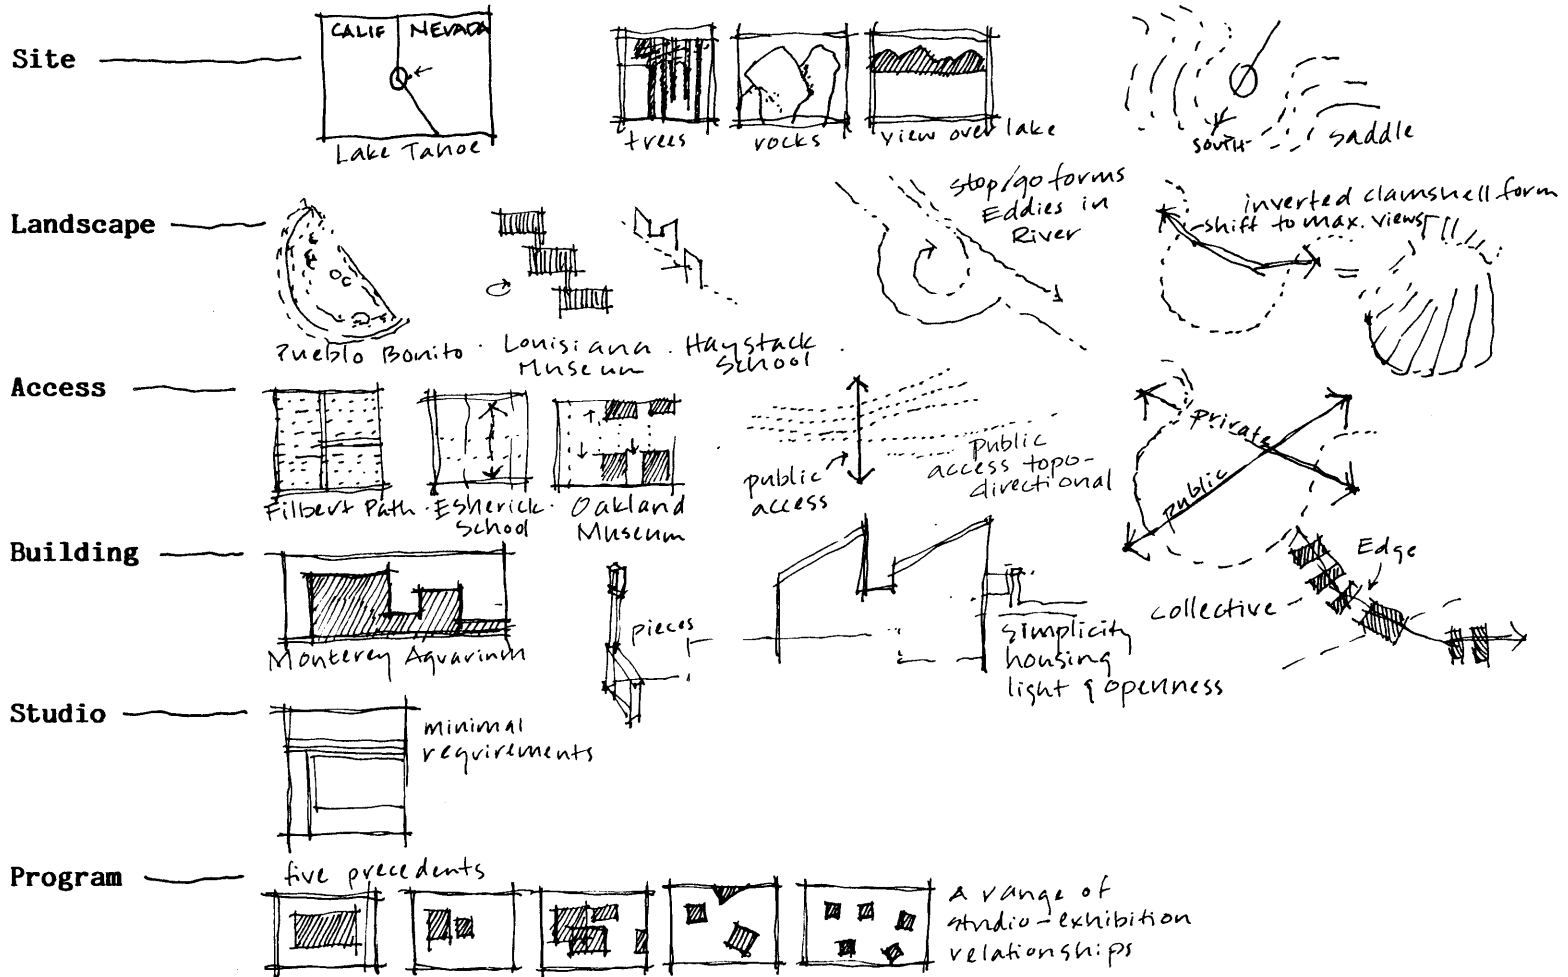 Site
CALIF NEVADA
Lake Tahoe
trees
rocks
view over lake
south
saddle
Landscape
Pueblo Bonito · Louisiana Museum · Haystack School ·
stop/go forms
Eddies in
River
inverted clamshell form
shift to max. views
=
Access
Filbert Path · Esherick School · Oakland Museum
public
access
public
access topo-
directional
private
public
Building
Monterey Aquarium
pieces
simplicity
housing
light & openness
collective
Edge
Studio
minimal
requirements
Program
five precedents
A range of
studio-exhibition
relationships